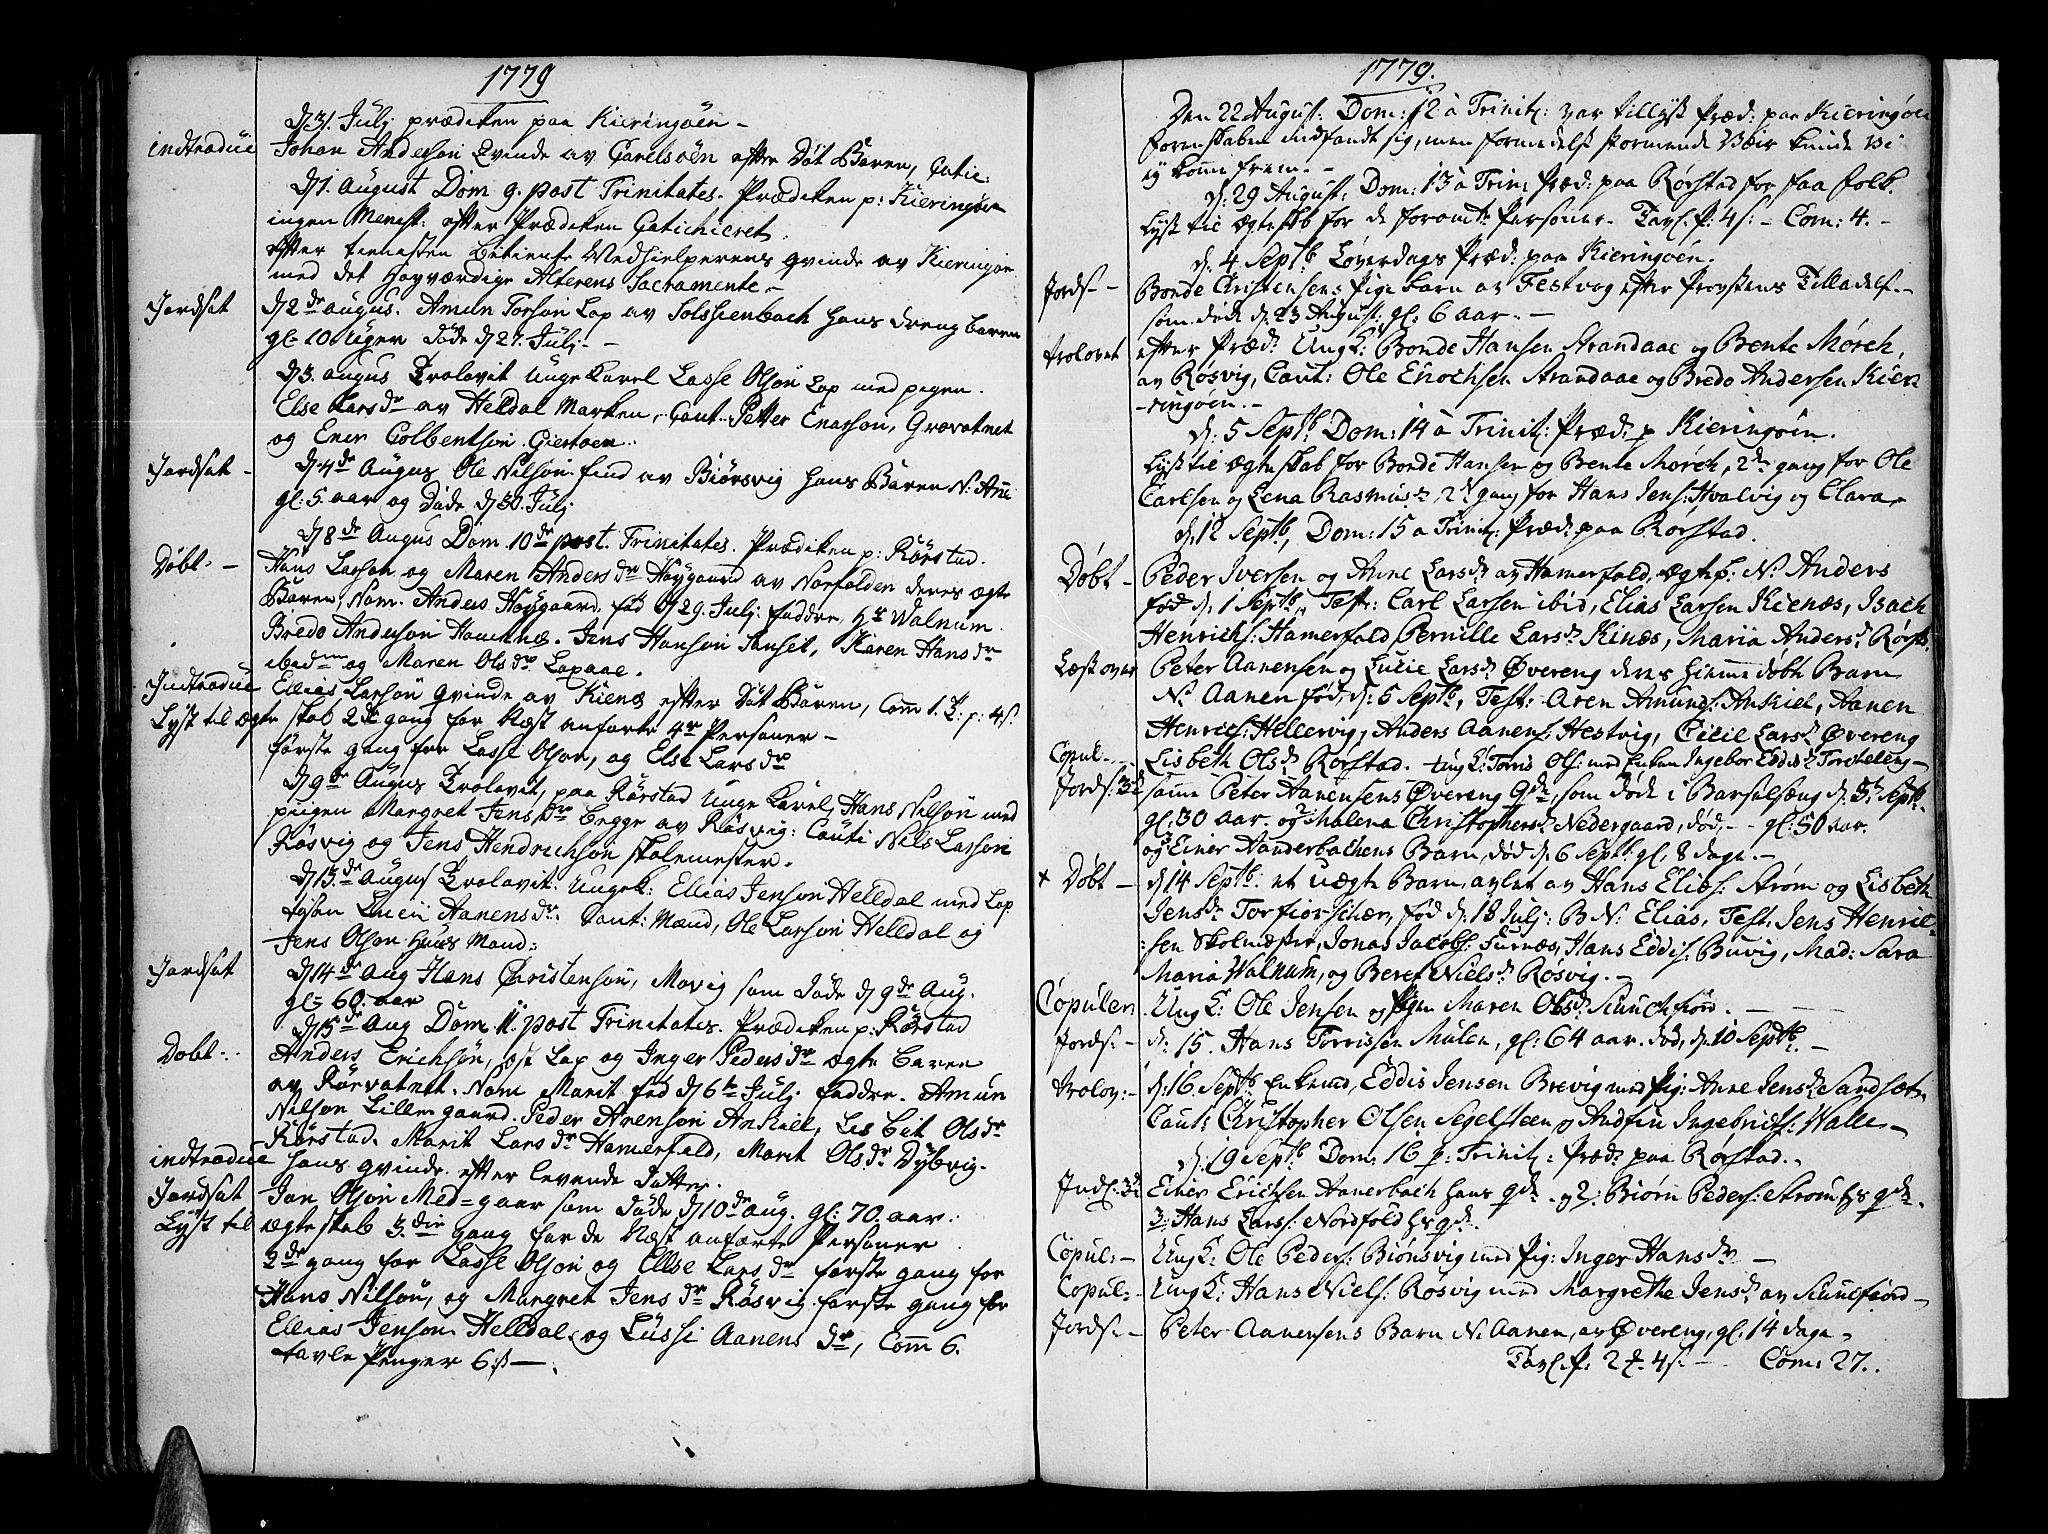 1779
d 31. Julj prædiken paa Kieringöen –
indtroduc Johan Anderson qvinde av Carelsöen efter Döt Baren, Catic:
d 1. August Dom 9. post Trinitates. Prædiken p: Kieringöen
ingen Menist: efter Prædiken Catichieret.
Efter tienesten betiente Medhielperens qvinde av Kieringön
med det Høyværdige Alterens Sacramente. –
Jordsat d 2de augus. Amun Torson Lap av Solssienbach hans dreng baren
gl: 10 Uger döde d 27. Julj. –
d 3. augus Trolovit Unge Karel Lasse Olson Lap med pigen
Else Larsdr av Helldal Marken, Caut. Petter Enarson, Grovatnet
og Ener Colbentson Giertoen.
Jordsat – d 4de Augus Ole Nilson find av Biörsvig hans Baren N: Ane
gl: 5. aar og Döde d 30 Julj
d 8de Augus Dom. 10de post. Trinitates. Prædiken p: Rörstad.
Döbt. – Hans Larson og Maren Andersdr Höygaard av Norfolden deres ægte
Baren, Nom. Anders Höygaard, föd d 29. Julj. faddre, Hr Walnum.
Bredo Anderson Hammnæs. Jens Hanson Sanset, Karen Hansdr
ibedm og Maren Olsdr Loxaae.
Indtroduc Ellias Larson qvinde av Kienæ efter Döt Baren, Comm 1. T: p: 4s:
Lyst til ægte skab 2de gang for Næst anforte 4re Personer –
förste gang for Lasse Olson, og Else Larsdr
d 9de Augus Trolovit, paa Rörstad Unge Karel, Hans Nilson med
piigen Margret Jensdr begge av Rösvig: Cauti Nils Lasson
Rösvig og Jens Hendrichson skolemester.
d 13.de Augus Trolovit: Ungek: Ellias Jenson Helldal med Lap
tyson Lucii Aanensdr. Caut: Mænd, Ole Larson Helldal og
Jens Olson Huus Mand:
Jordsat d 14de Aug Hans Christenson, Movig som döde d 9de Aug.
gl: 60. aar
d 15de Aug Dom. 11. post Trinitates. Prædiken p: Rörstad
Dobt.. Anders Erichson, ost Lap og Inger Pedersdr ægte baren
av Rörvatnet. Nom Marit föd d 6te Julj faddre. Amun
Nilson Lillemgaard. Peder Arenson Ankiilt, Lisbit Olsdr
Rörstad. Marit Larsdr Hamerfald, Marit Olsdr Dybvig.
indtroduc hans qvinde efter levende Datter.
Jordsat Jon Olson Med=gaar som döde d 10de aug. gl: 70. aar.
Lyst til ægte skab 3.die gang for de Næst anforte Personer
2de gang for Lasse Olson og Ellse Larsdr forste gang for
Hans Nilson, og Margret Jensdr Rösvig. forste gang for
Ellias Jenson Helldal og Lüssi Aanensdr, Comm 6.
tavle Penger 6 s –.
1779.
Den 22 August: Dom: 12 a Trinit: var tillyst Præd: paa Kieringøen
forrettskaben indfandt sig, men formedelst stormende Vær kunde vi
ey komme frem. –
d. 29 August: Dom: 13 a Trin: Præd: paa Rørstad for faa folk.
Lyst til ægteskb for de foromte Personer. Tavl. P: 4 s: – Com: 4. –
d: 4 Septb Løverdags Præd: paa Kieringøen.
Jords: – Bonde Christensens Pige barn av Festvog efter Provstens Tilladelse –
som døde d. 23 August: gl: 6 aar. –
trolovet efter Præd: Ung K: Bonde Hansen Strandaae og Bente Mørch,
av Røsvig, Caut: Ole Enochsen Strandaae og Bredo Andersen Kier
–ringøen. –
d: 5 Septb Dom: 14 a Trinit: Præd: p Kieringøen.
Lyst til ægteskab for Bonde Hansen og Bente Mørch, 2de gang for Ole
Carlsen og Lena Rasmusdr 2de gang for Hans Jens: Hvalvig og Clara –
d. 12 Septb, Dom: 15 a Trinit: Præd: paa Rørstad.
Døbt – Peder Iversen og Anne Larsdr av Hamerfald, ægtef: N. Anders
fød d. 1 Septb. Test: Carl Larsen ibid, Elias Larsen Kienæs, Isach
Henrichs: Hamerfald, Pernille Larsdr Kinæs, Maria Andersdr Rørst:
Læst over Peter Aanensen og Lucie Larsdr Øvereng deres hiemmedøbte Barn
N. Aanen fød, d: 5 Septb, Test: Aren Amunds: Ankiet, Aanen
Henrics: Hellervig, Anders Aanens: Hestvig, Cicil Larsdr Øvereng
Copul. – Lisbeth Olsdr Rørstad. Ung K: Torris Ols: med Enken Ingebor Eddisdr Torchileng –
Jords: 3de samme Peter Aanensens Øvereng qde, som døde i Barselseng d. 5te Septb.
gl. 30 aar. og Malena Christophersdr Nedergaard, død, – gl: 50 aar.
og Einer Aanderbachens Barn, død d: 6 Septb: gl. 8 dage. –
x Døbt – d. 14 Septb: et uægte Barn, avlet av Hans Elies: Strøm og Lisbeth
Jensdr Torfior=schær, fød d: 18 Julj: B N: Elias, Test: Jens Henric-
:sen Skolmester, Jonas Jacobs: Furnæs, Hans Eddis: Buvig, Mad: Sara
Maria Walnum, og Beret Nielsdr Røsvig. –
Copuleret Ung K: Ole Jensen og Pigen Maren Olsdr Suuchfiord. –
Jords: – d: 15. Hans Torrissen Mulen, gl: 64 aar. død, d: 10 Septb. –
trolov: – d. 16 Septb Enkemd, Eddis Jensen Brevig med Pig: Anne Jensdr Sandsæt
Caut: Christopher Olsen Segelsteen og Andfin Ingebrits: Walle –
d. 19 Septb Dom: 16 p: Trinit: Præd: paa Rørstad.
Indl: 3de Einer Erichsen Aanerbach hans qde. og 2: Biørn Peders: Strøm hs qde.
3: Hans Larss: Nordfold hs qde.
Copul: – Ung K: Ole Peders: Biørnsvig med Pig: Inger Hansdr –
Copul: – Ung K: Hans Niels: Røsvig med Margrethe Jensdr av Suulfiord –
Jords: – Peter Aanensens Barn N. Aanen, av Øvereng, gl. 14 dage.
Tavl. P: 2 t. 4 s. – Com: 27.